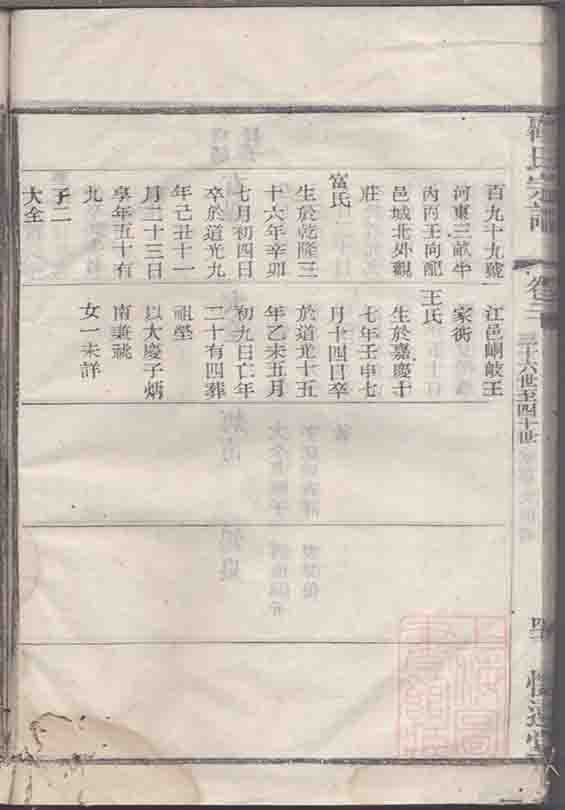 百九十九號
河東三畝半
丙向配
邑城北外觀
莊
富氏
生於乾隆三
十六年辛卯
七月初四日
卒於道光九
年己丑十一
月二十三日
享年五十有
九
子二
大全
江邑峒岐王
家衖
王氏
生於嘉慶十
七年壬申七
月十四日卒
於道光十五
年乙未五月
初九日亡年
二十有四葬
祖塋
以大慶子炳
南兼祧
女一未詳
氏宗譜
卷三
三十六世至四十世